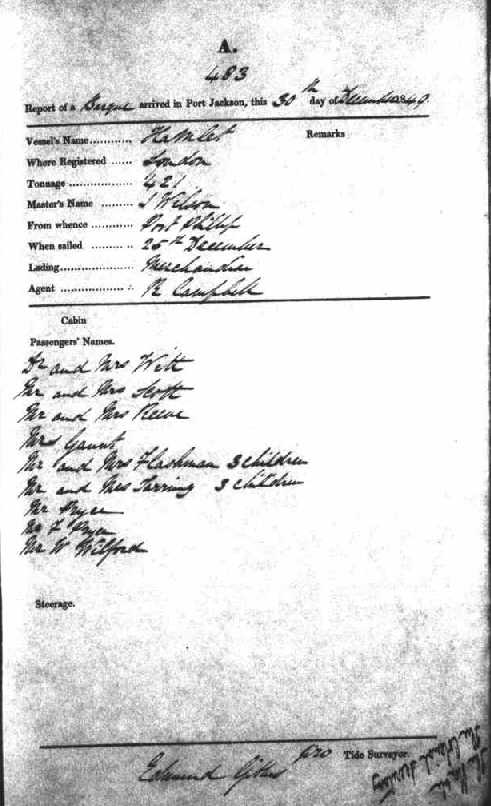 A.
483
Report of a Barque arrived in Port Jackson, this 30th day of December 1840
Vessel's Name............ Hamlet Remarks
Where Registered ...... London
Tonnage .................. 421
Master's Name ......... J Wilson
From whence ............ Port Phillip
When sailed ............. 25th December
Lading..................... Merchandise
Agent .................... R Campbell
Cabin
Passengers' Names.
Dr and Mrs Witt
Mr and Mrs Scott
Mr and Mrs Reeve
Mrs Gaunt
Mr and Mrs Flashman 3 children
Mr and Mrs Tarring 3 children
Mr Pryce
Mr F Pryce
Mr W Wilford
Steerage.
pro Tide Surveyor.
Edmund